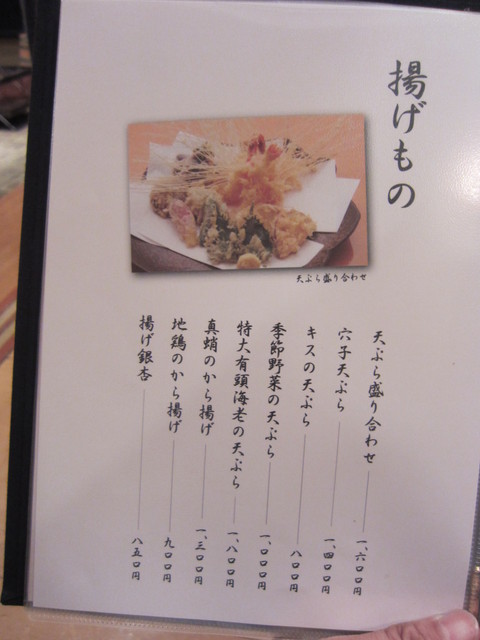 揚げもの
天ぷら盛り合わせ
天ぷら盛り合わせ 一、六〇〇円
穴子天ぷら 一、四〇〇円
キスの天ぷら 八〇〇円
季節野菜の天ぷら 一、〇〇〇円
特大有頭海老の天ぷら 一、八〇〇円
真蛸のから揚げ 一、三〇〇円
地鶏のから揚げ 九〇〇円
揚げ銀杏 八五〇円